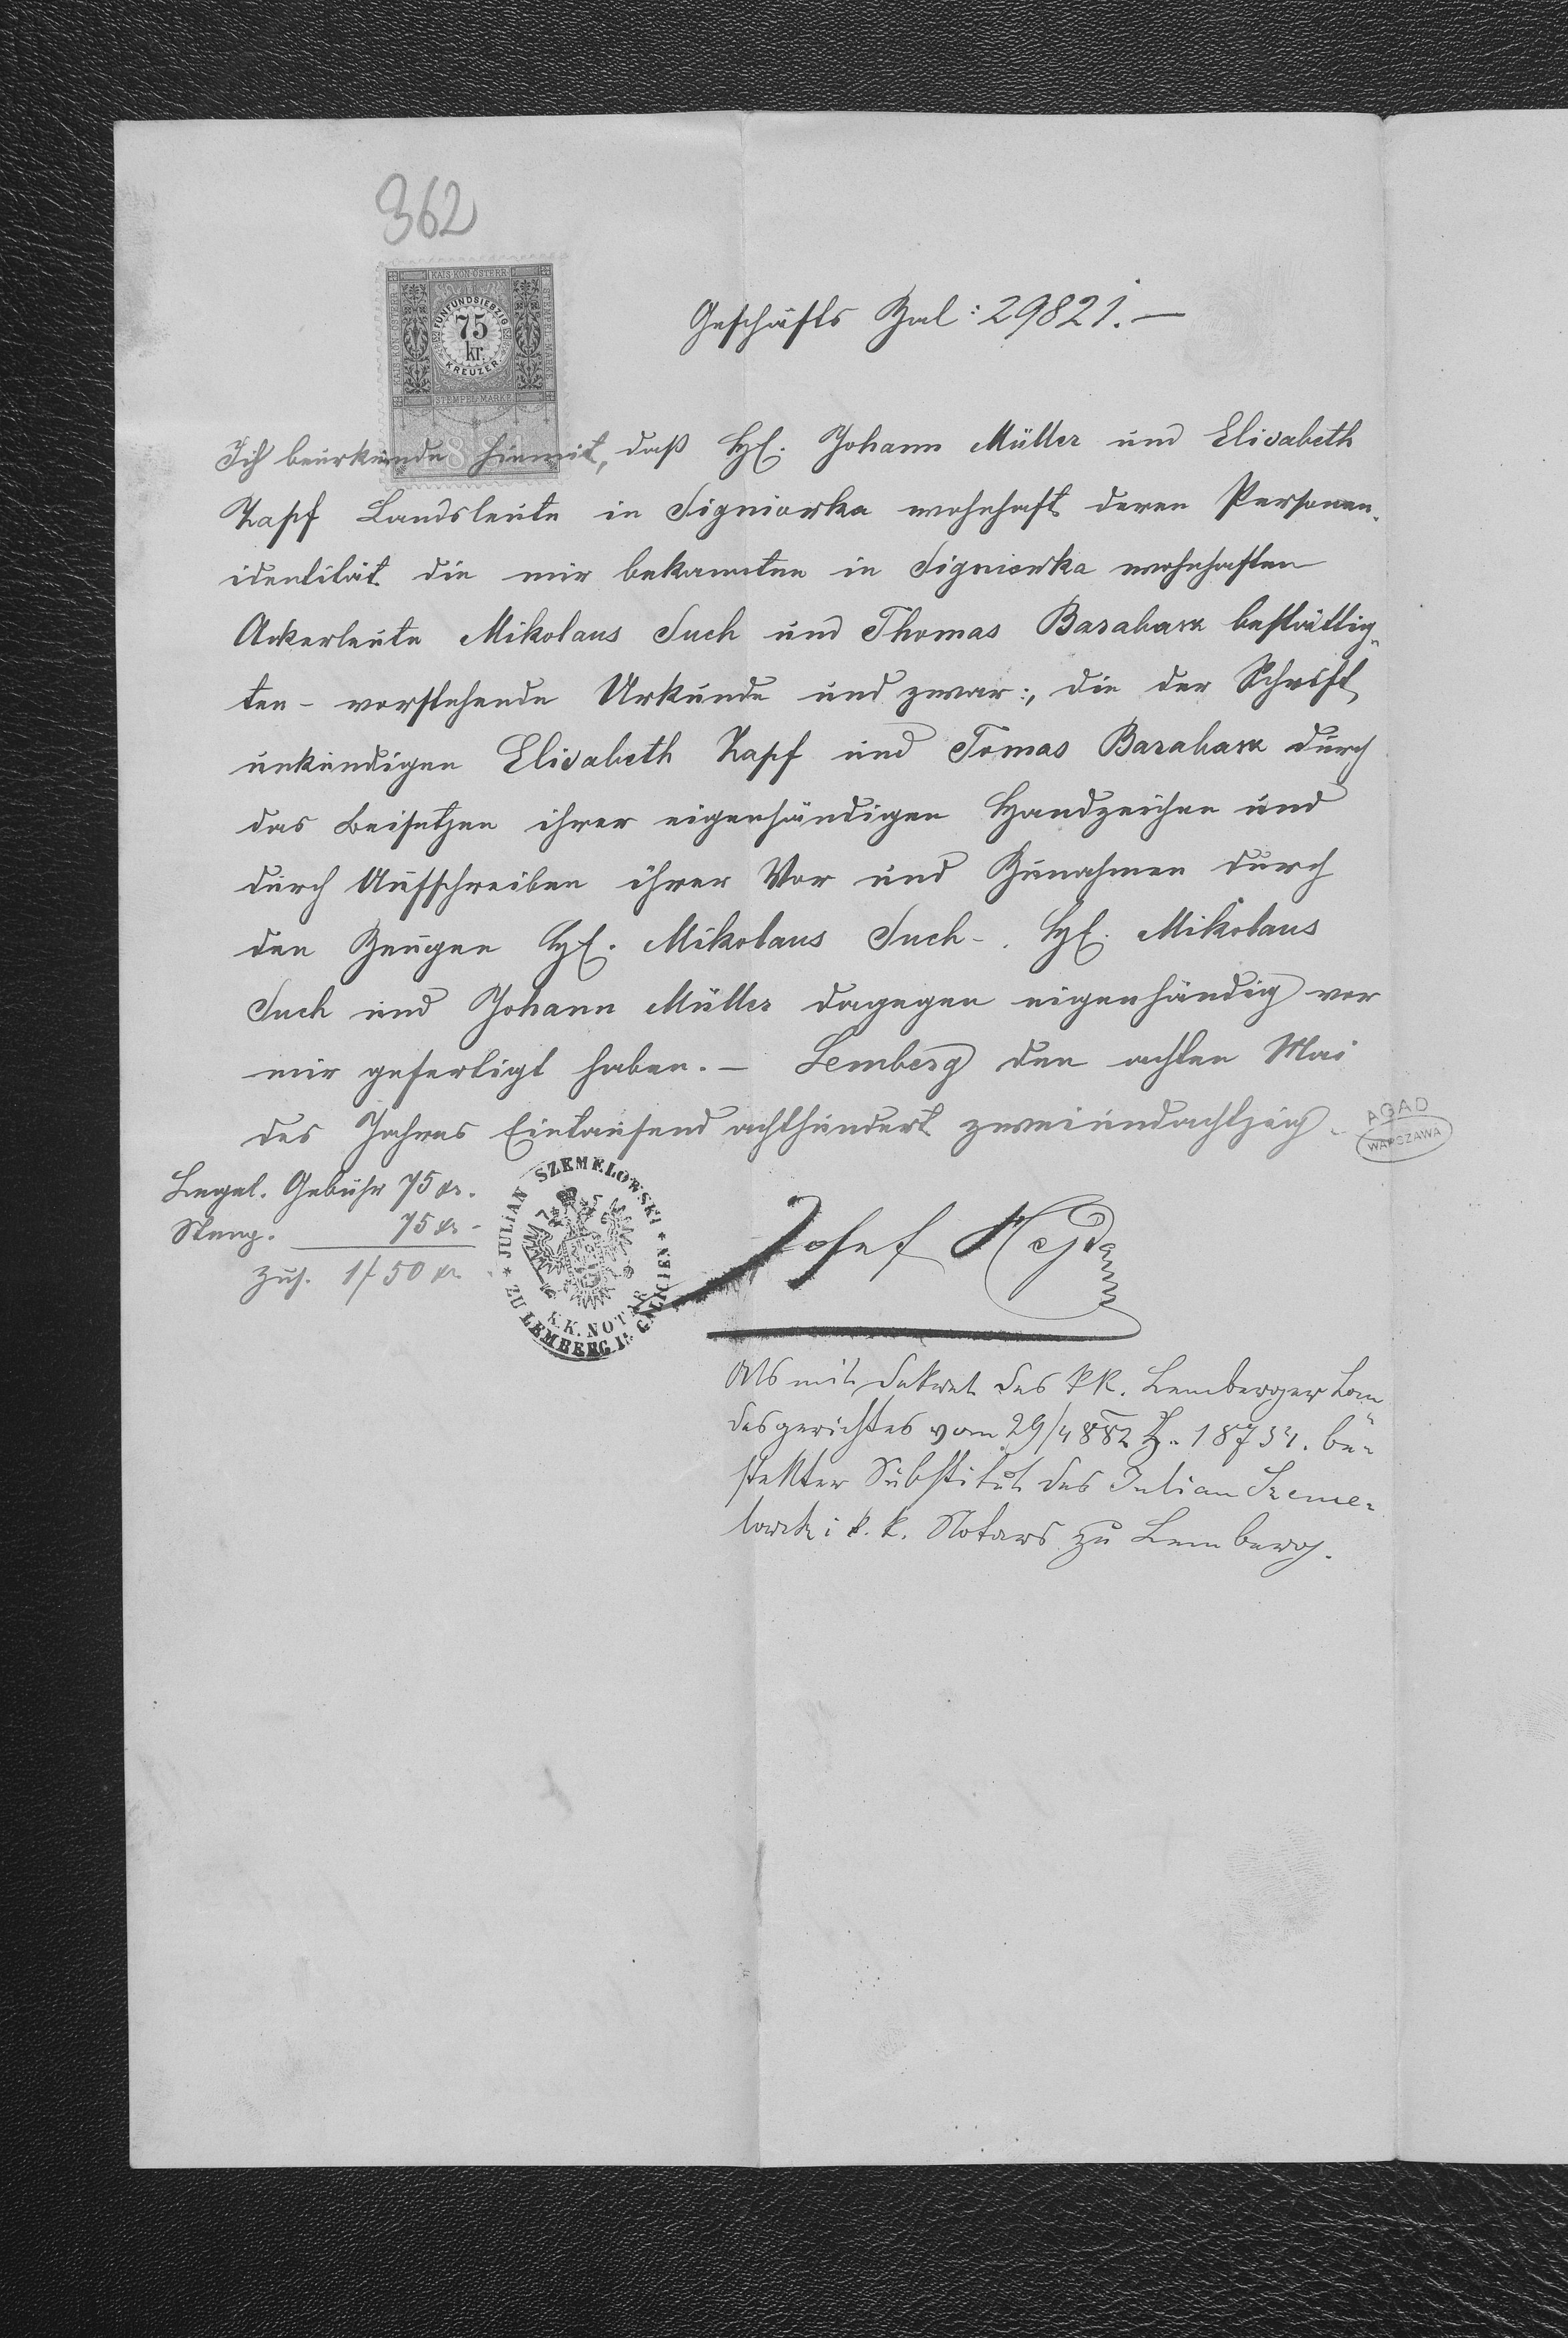 362
KAIS. KÖN. ÖSTERR.
FÜNFUNDSIEBZIG
75
kr.
KREUZER
STEMPEL MARKE
Geschäfts Zal: 29821.—
Ich beurkunde hiemit, daß HH. Johann Müller und Elisabeth
Zapf Landsleute in Signiowka wohnhaft deren Personen-
identität die mir bekannten in Signiowka wohnhaften
Ackerleute Mikolaus Such und Thomas bestättig-
ten – vorstehende Urkunde und zwar:, die der Schrift
unkundigen Elisabeth Zapf und Tomas durch
das Beisetzen ihrer eigenhändigen Handzeichen und
durch Aufschreiben ihrer Vor und Zunahmen durch
den Zeugen HH. Mikolaus Such –. HH. Mikolaus
Such und Johann Müller dagegen eigenhändig vor
mir gefertigt haben. — Lemberg den achten Mai
des Jahres Eintausend achthundert zweiundachtzig –
AGAD
WARSZAWA
Legal. Gebühr 75 kr.
Stemp. 75 kr –
Zus. 1f 50 kr
JULIAN SZEMELOWSKI
K.K. NOTAR
ZU LEMBERG IN GALICIEN
Josef Hejda
Als mit Dekret des kk. Lemberger Lan-
desgerichtes vom 29/4 882 Z. 18734. be-
stellter Substitut des Julian Szeme-
lowski k. k. Notars zu Lemberg.